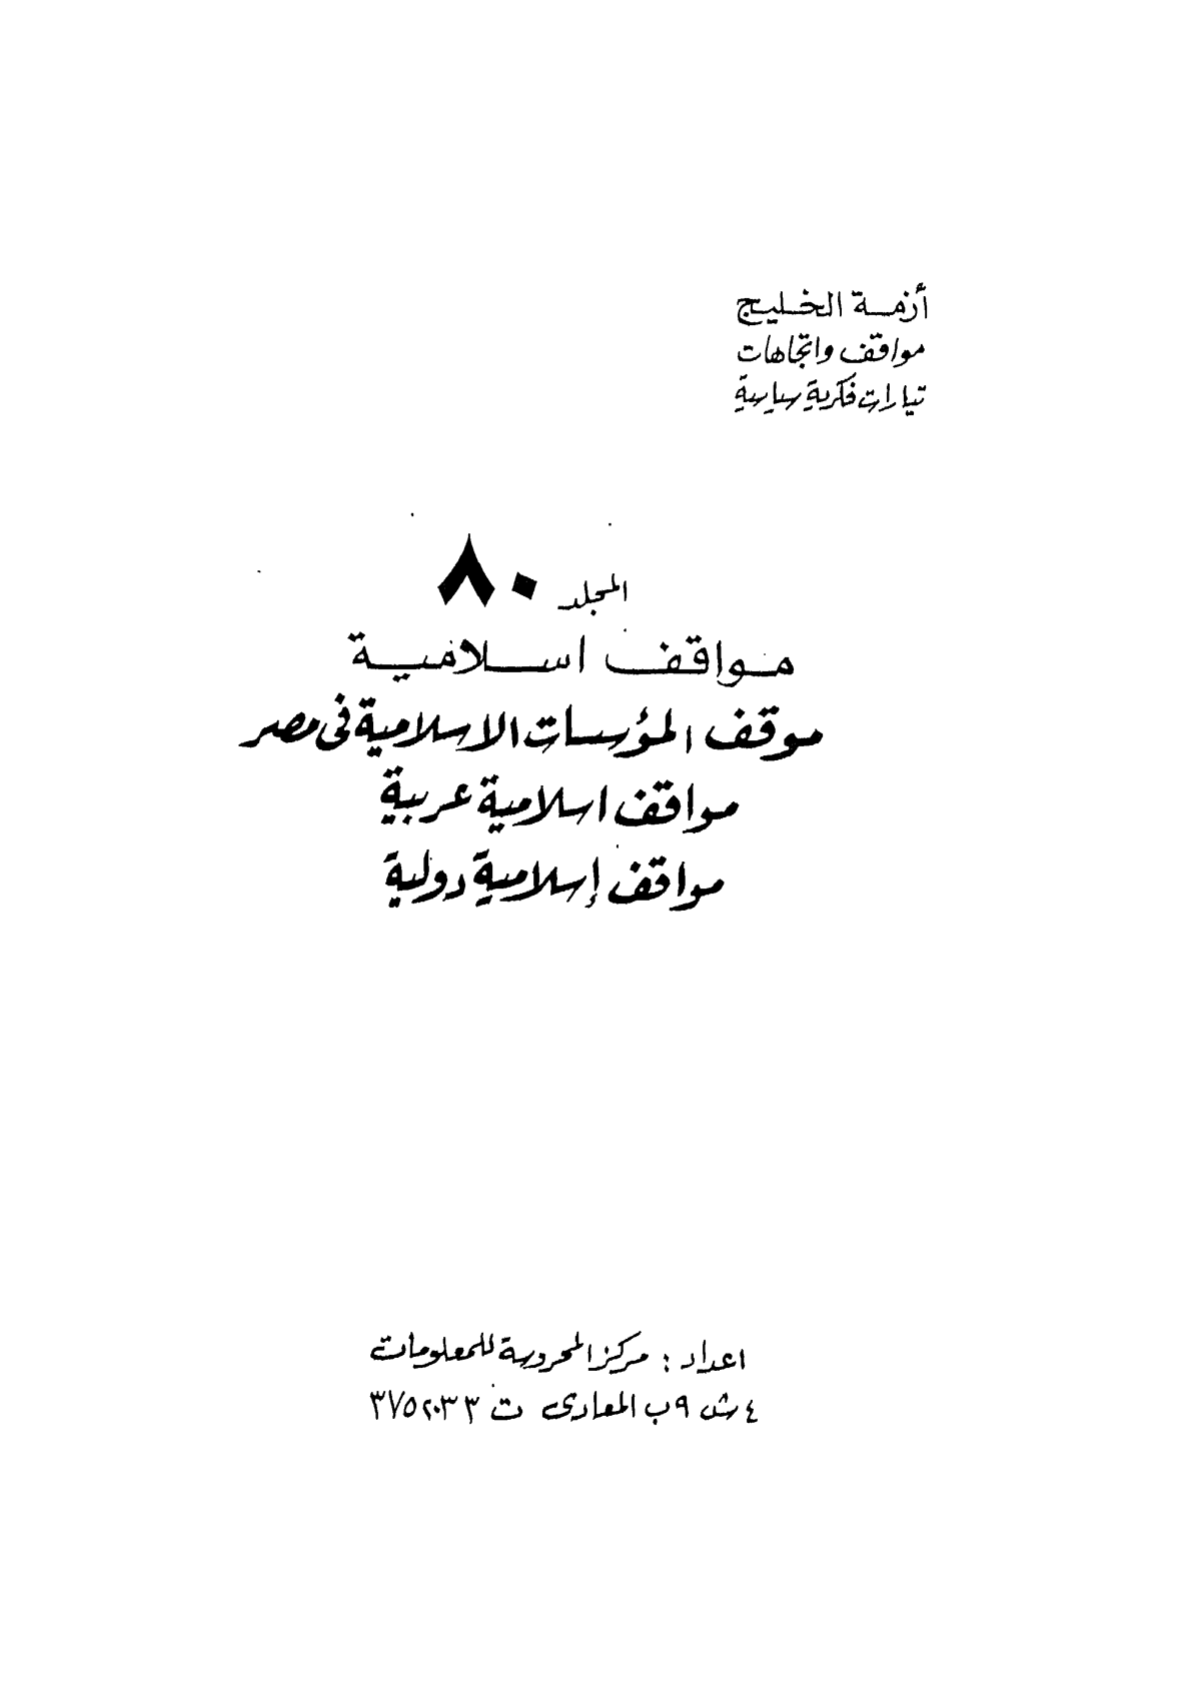 أزمة الخليج
مواقف واتجاهات
تيارات فكرية سياسية
المجلد ٨٠
مواقف اسلامية
موقف المؤسسات الاسلامية فى مصر
مواقف اسلامية عربية
مواقف إسلامية دولية
اعداد : مركز المحروسة للمعلومات
٤ ش ٩ب المعادى ت ٣٧٥٢٠٣٣